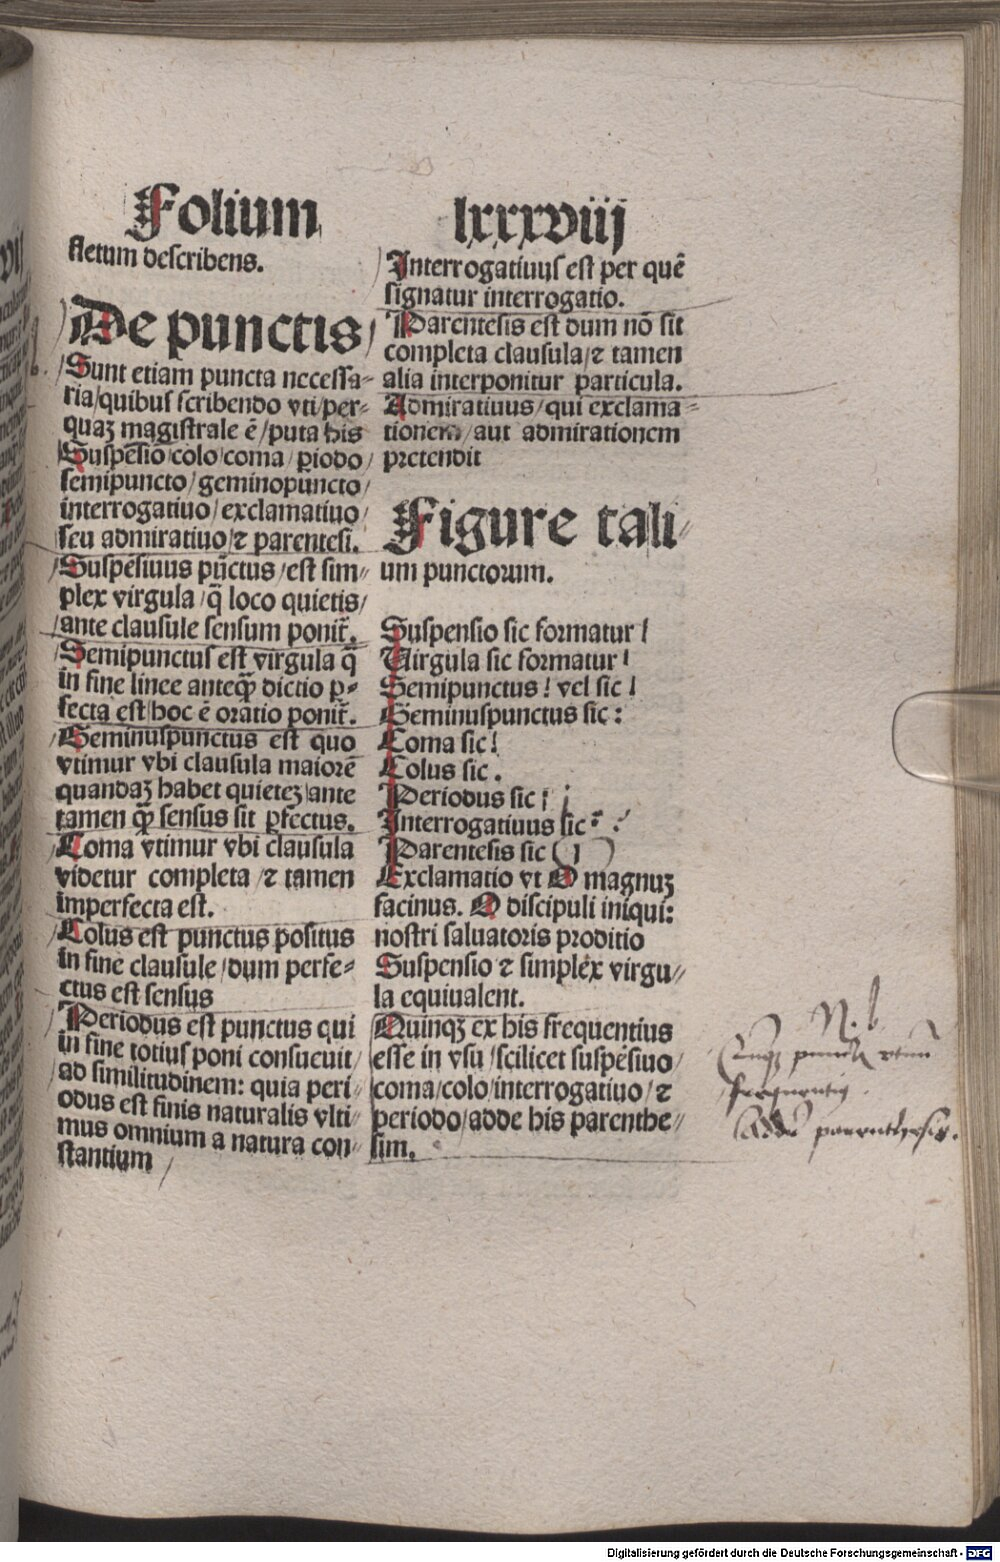 Folium lxxxviij
fletum describens.
De punctis
Sunt etiam puncta necessa⸗
ria/quibus scribendo vti/per⸗
quaꝫ magistrale ē/puta his
Suspēsio/colo/coma/ꝑiodo/
semipuncto/geminopuncto/
interrogatiuo/exclamatiuo/
seu admiratiuo/⁊ parentesi.
Suspēsiuus pūctus/est sim⸗
plex virgula/q̄ loco quietis/
ante clausule sensum ponit᷑.
Semipunctus est virgula q̄
in fine linee anteq̄ꝫ dictio ꝑ⸗
fecta est/hoc ē oratio ponit᷑.
Geminuspunctus est quo
vtimur vbi clausula maiorē
quandaꝫ habet quieteꝫ/ante
tamen q̄ꝫ sensus sit ꝑfectus.
Coma vtimur vbi clausula
videtur completa/⁊ tamen
imperfecta est.
Colus est punctus positus
in fine clausule/dum perfe⸗
ctus est sensus
Periodus est punctus qui
in fine totius poni consueuit/
ad similitudinem: quia peri/
odus est finis naturalis vlti⸗
mus omnium a natura con⸗
stantium
Interrogatiuus est per quē
signatur interrogatio.
Parentesis est dum nō sit
completa clausula/⁊ tamen
alia interponitur particula.
Admiratiuus/qui exclama⸗
tionem/aut admirationem
pretendit
Figure tali⸗
um punctorum.
Suspensio sic formatur /
Virgula sic formatur /
Semipunctus ! vel sic !
Geminuspunctus sic :
Coma sic !
Colus sic .
Periodus sic ; ;
Interrogatiuus sic ?
Parentesis sic ( )
Exclamatio vt O magnuꝫ
facinus. O discipuli iniqui:
nostri saluatoris proditio
Suspensio ⁊ simplex virgu⸗
la equiualent.
Quinqꝫ ex his frequentius
esse in vsu/scilicet suspēsiuo/
coma/colo/interrogatiuo/⁊
periodo/adde his parenthe⸗
sim.
N.b
Quinqꝫ puncta
frequentius
Adde parenthesis.
Digitalisierung gefördert durch die Deutsche Forschungsgemeinschaft - DFG